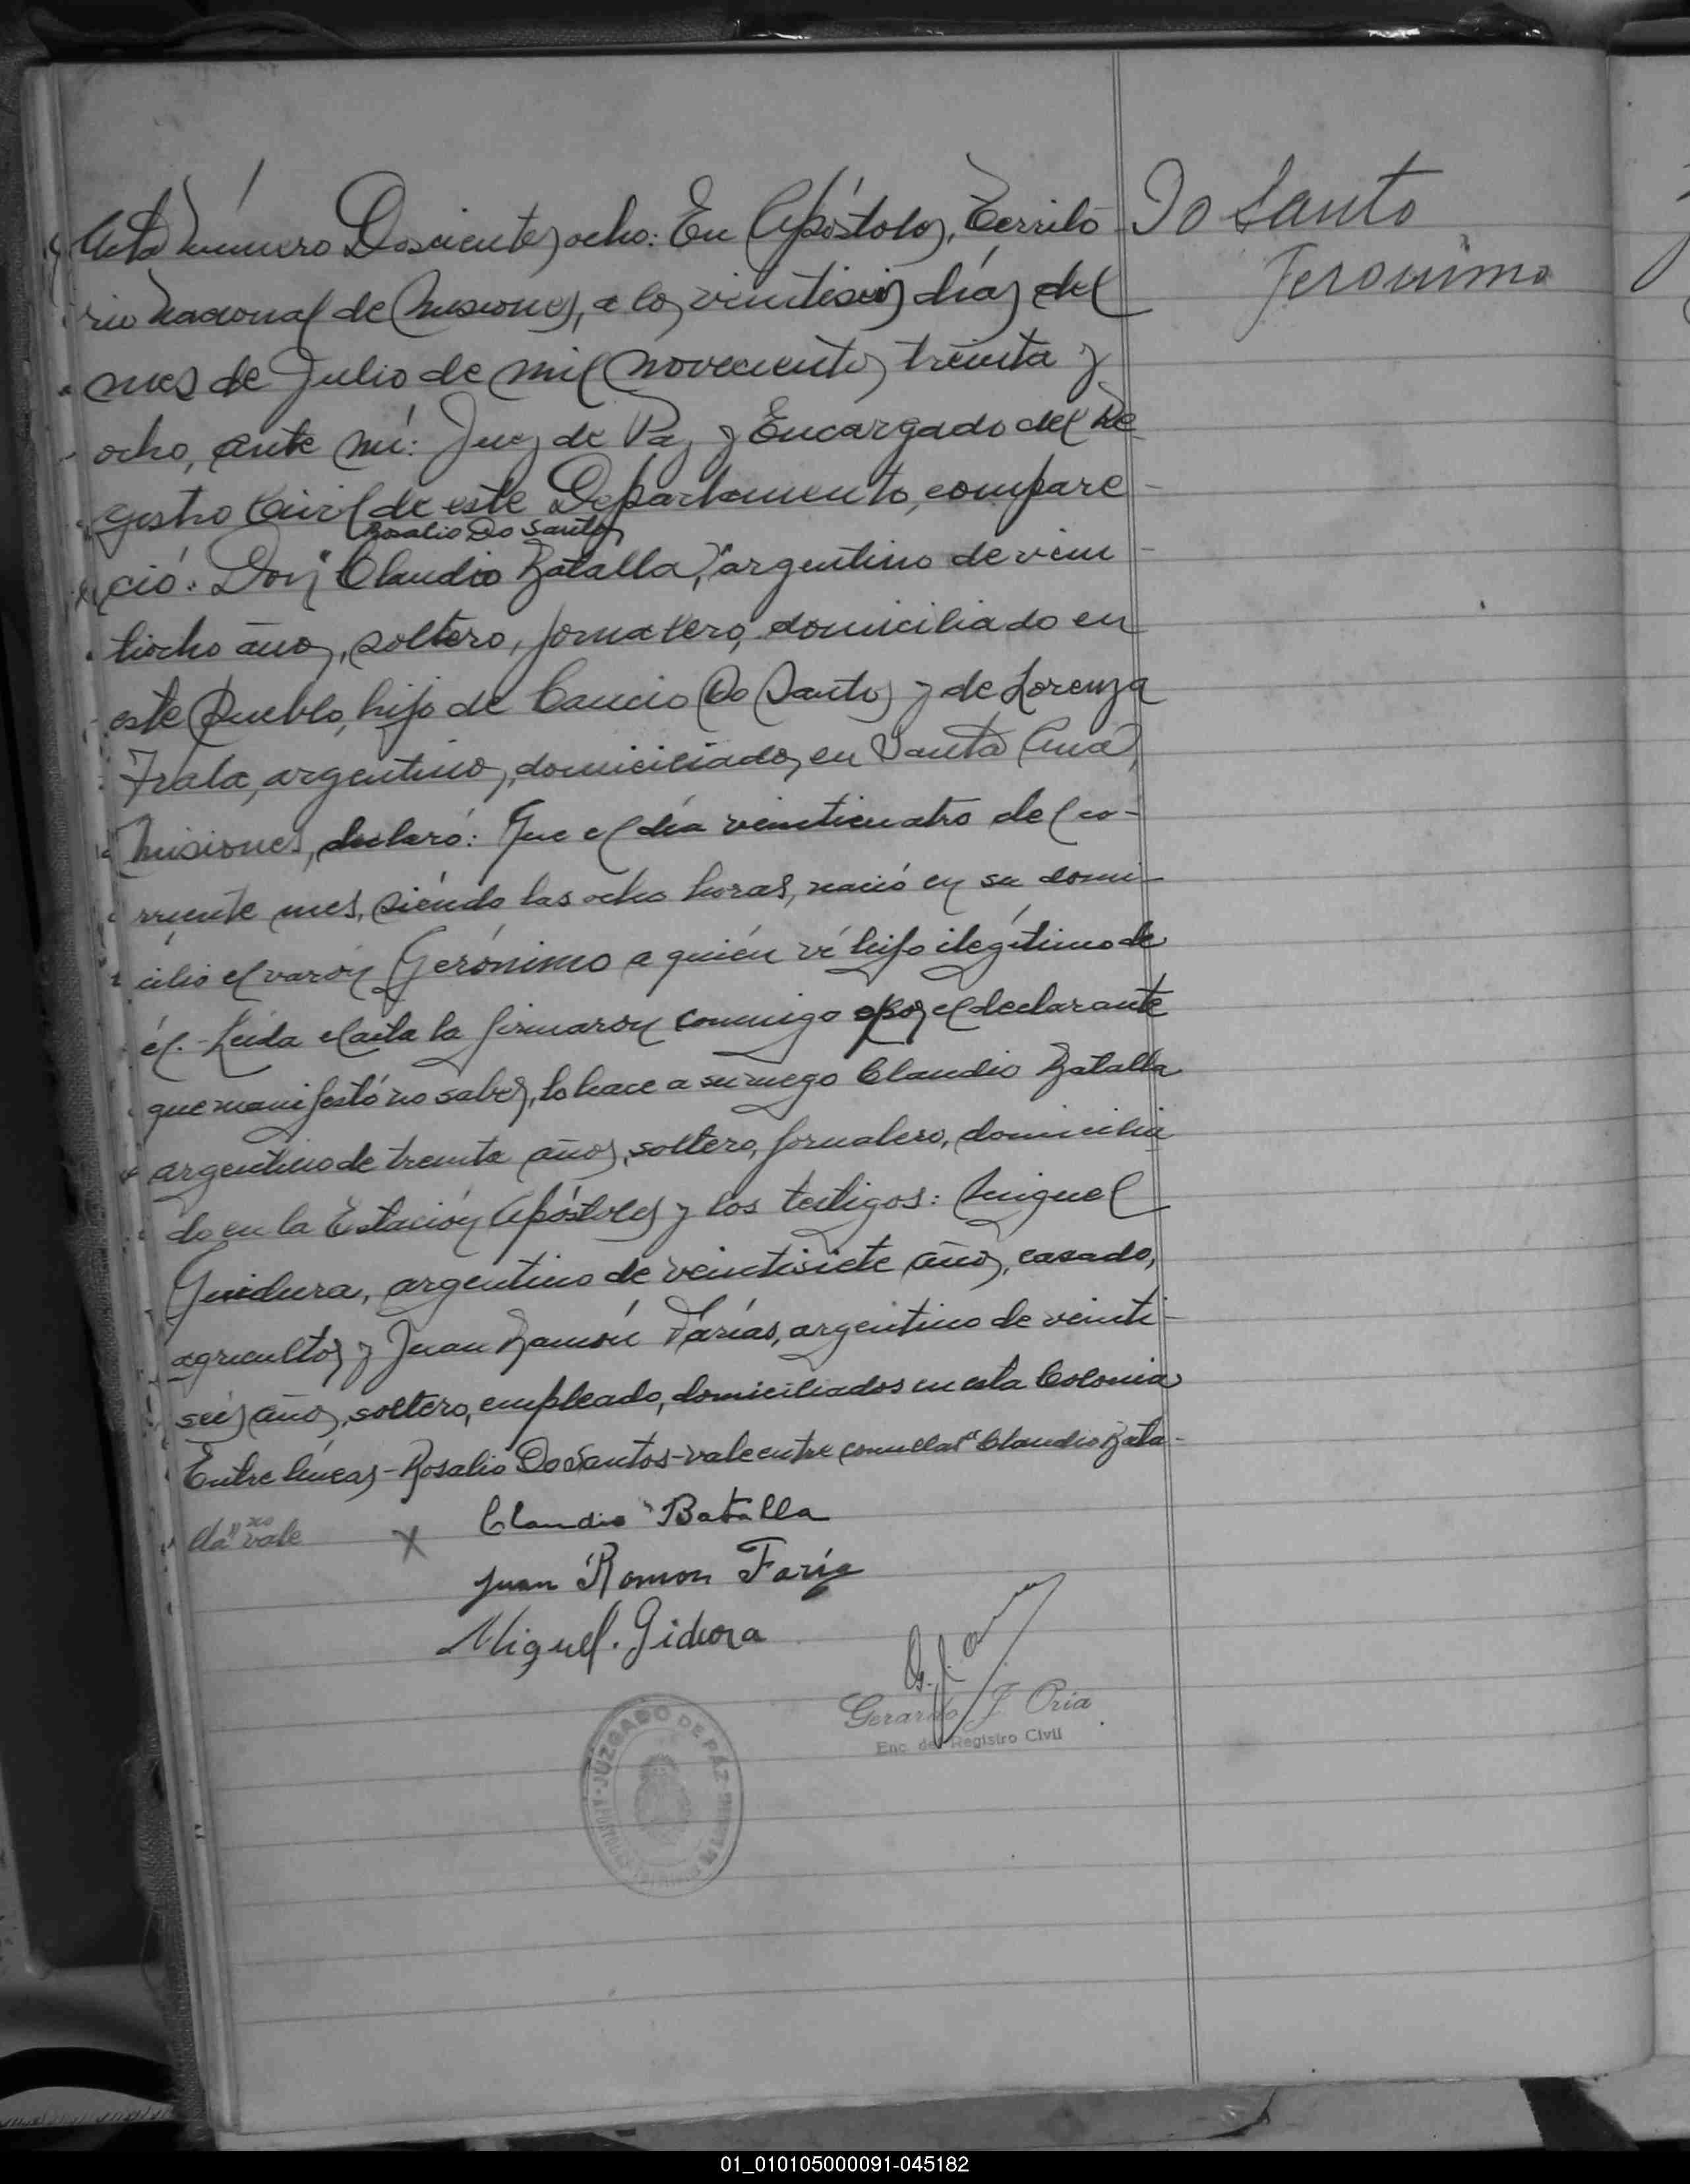 Acta número Doscientos ocho: En Apóstoles, Territo-
rio Nacional de Misiones, a los veintiseis días del
mes de Julio de mil novecientos treinta y
ocho, ante mí: Juez de Paz y Encargado del Re-
gistro Civil de este Departamento, compare-
Rosalio Do Santos
ció: Don "Claudio Batalla," argentino de vein-
tiocho años, soltero, jornalero, domiciliado en
este Pueblo, hijo de Caucio Do Santos y de Lorenza
Frala, argentinos, domiciliados en Santa Ana,
Misiones, declaró: Que el día veinticuatro del co-
rriente mes, siéndo las ocho horas, nació en su domi-
cilio el varón Gerónimo a quién ví hijo ilegítimo de
él.- Leida el acta la firmaron conmigo por el declarante
que manifestó no saber, lo hace a su ruego Claudio Batalla
argentino de treinta años, soltero, jornalero, domicilia-
do en la Estación Apóstoles y los testigos: Miguel
Guidura, argentino de veintisiete años, casado,
agricultor y Juan Ramón Farías, argentino de veinti-
seis años, soltero, empleado, domiciliados en esta Colonia
Entre líneas - Rosalio Do Santos - vale entre comillas "Claudio Bata-
lla" no vale
X Claudio Batalla
Juan Ramon Faria
Miguel. Gidura
Gerardo J. Oria
Enc. del Registro Civil
JUZGADO DE PAZ
Do Santo
Jeronimo
01_010105000091-045182